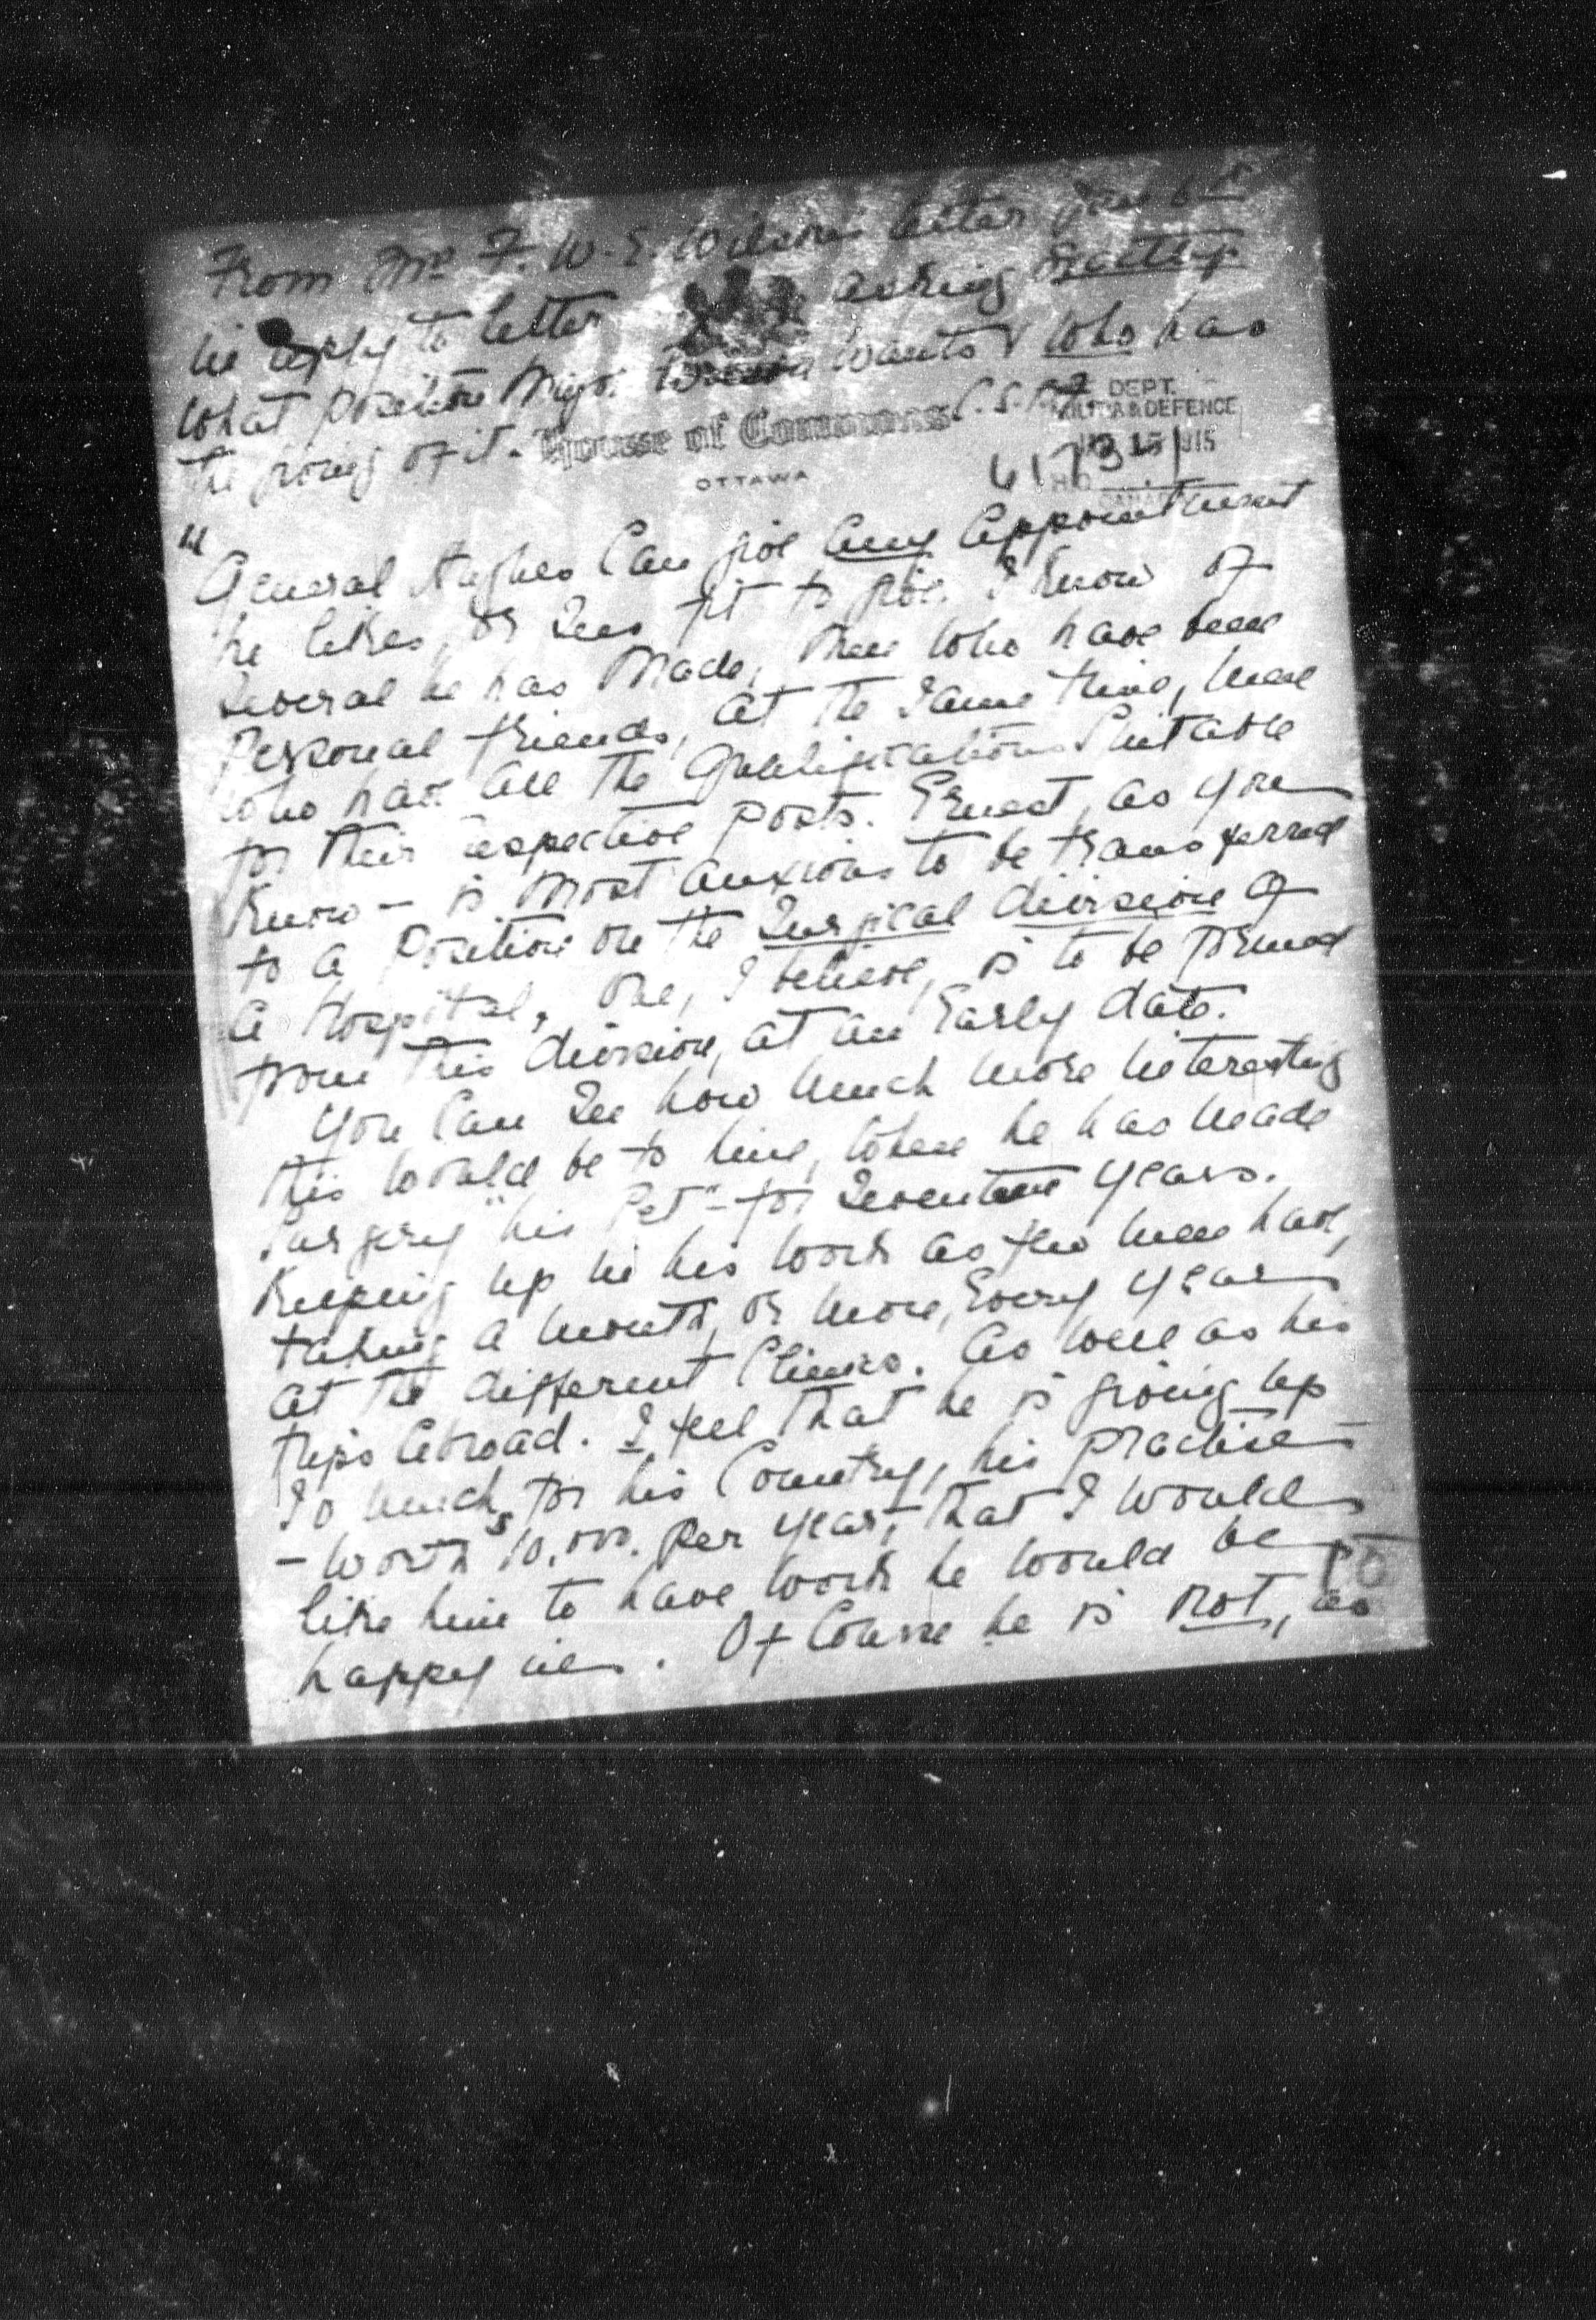 From Mrs F. W. E. Wilson's letter Jan 6th
in reply to letter asking exactly
what position Major wants & who has
the giving of it. House of Commons
OTTAWA
DEPT.
MILITIA & DEFENCE
"
General Hughes can give any appointment
he likes, or sees fit to give. I know of
several he has made, men who have been
personal friends, at the same time, men
who have all the qualifications suitable
for their respective posts. Ernest, as you
know – is most anxious to be transferred
to a position on the Surgical division of
a Hospital, one, I believe, is to be formed
from this division, at an early date.
You can see how much more interesting
this would be to him, when he has made
surgery "his pet" – for seventeen years.
Keeping up in his work as few men have,
taking a month, or more, every year
at the different Clinics. As well as his
trips abroad. I feel that he is giving up
so much, for his Country, his practise
– worth $10,000. per year, that I would
like him to have work he would be
happy in. Of course he is not, as